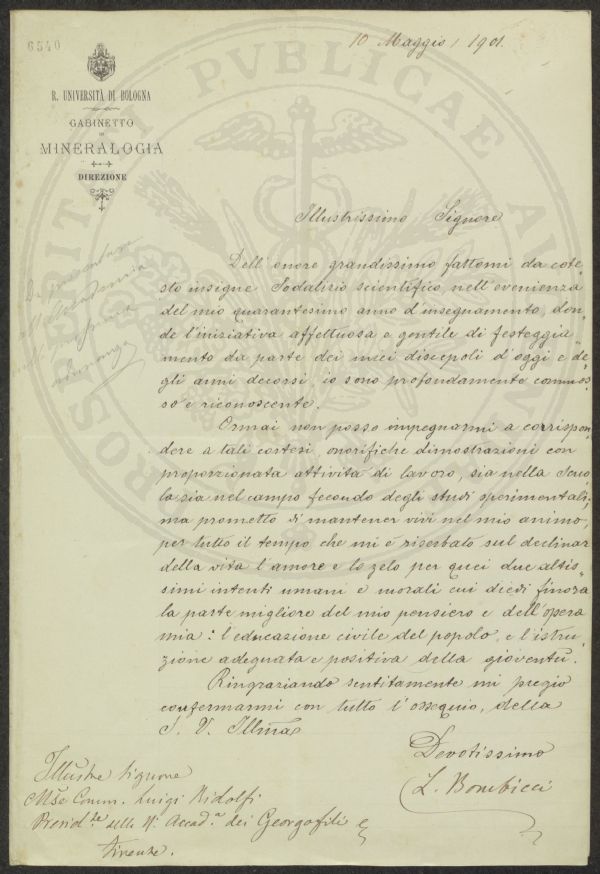 6540
10 Maggio, 1901.
R. UNIVERSITÀ DI BOLOGNA
GABINETTO
DI
MINERALOGIA
DIREZIONE
Illustrissimo Signore
Dell'onore grandissimo fattomi da cote-
sto insigne Sodalizio scientifico, nell'evenienza
del mio quarantesimo anno d'insegnamento, don-
de l'iniziativa affettuosa e gentile di festeggia-
mento da parte dei miei discepoli d'oggi e de-
gli anni decorsi, io sono profondamente commos-
so e riconoscente.
Ormai non posso impegnarmi a corrispon-
dere a tali cortesi, onorifiche dimostrazioni con
proporzionata attività di lavoro, sia nella Scuo-
la sia nel campo fecondo degli studi sperimentali;
ma prometto di mantener vivi nel mio animo,
per tutto il tempo che mi è riserbato sul declinar
della vita l'amore e lo zelo per quei due altis-
simi intenti umani e morali cui diedi finora
la parte migliore del mio pensiero e dell'opera
mia: l'educazione civile del popolo, e l'istru-
zione adeguata e positiva della gioventù.
Ringraziando sentitamente mi pregio
confermarmi con tutto l'ossequio, della
S. V. Illma
Devotissimo
L. Bombicci
Da presentare
all'Accademia
adunanza
Illustre Signore
Mse Comm. Luigi Ridolfi
Presid.te della R. Accad.a dei Georgofili
Firenze.
PROSPERITATI PUBLICAE AU